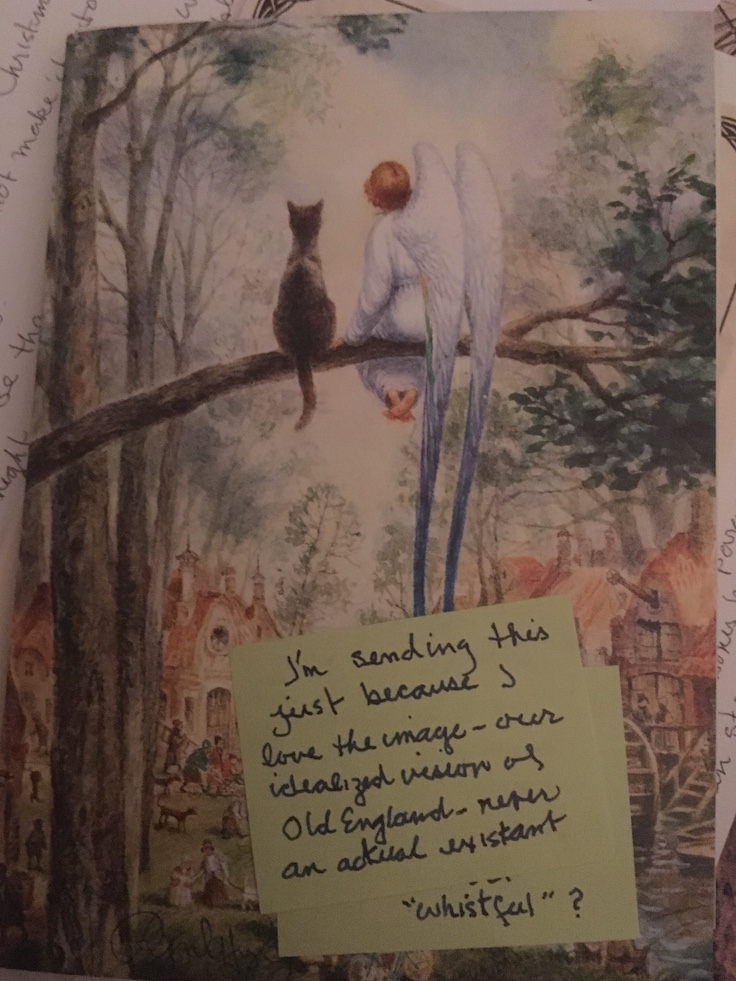 I'm sending this
just because I
love the image - our
idealized vision of
Old England - never
an actual existant
...
"whistful" ?
Christm
not make it
be tha
night